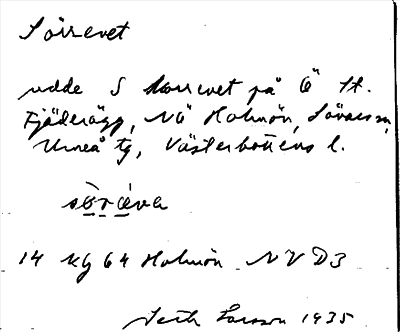 Sörrevet
udde S Norrevet på Ö St.
Fjäderägg, NÖ Holmön, Sävars sn,
Umeå tg, Västerbottens l.
söräva
14 Kg 64 Holmön NV D3
Seth Larsson 1935